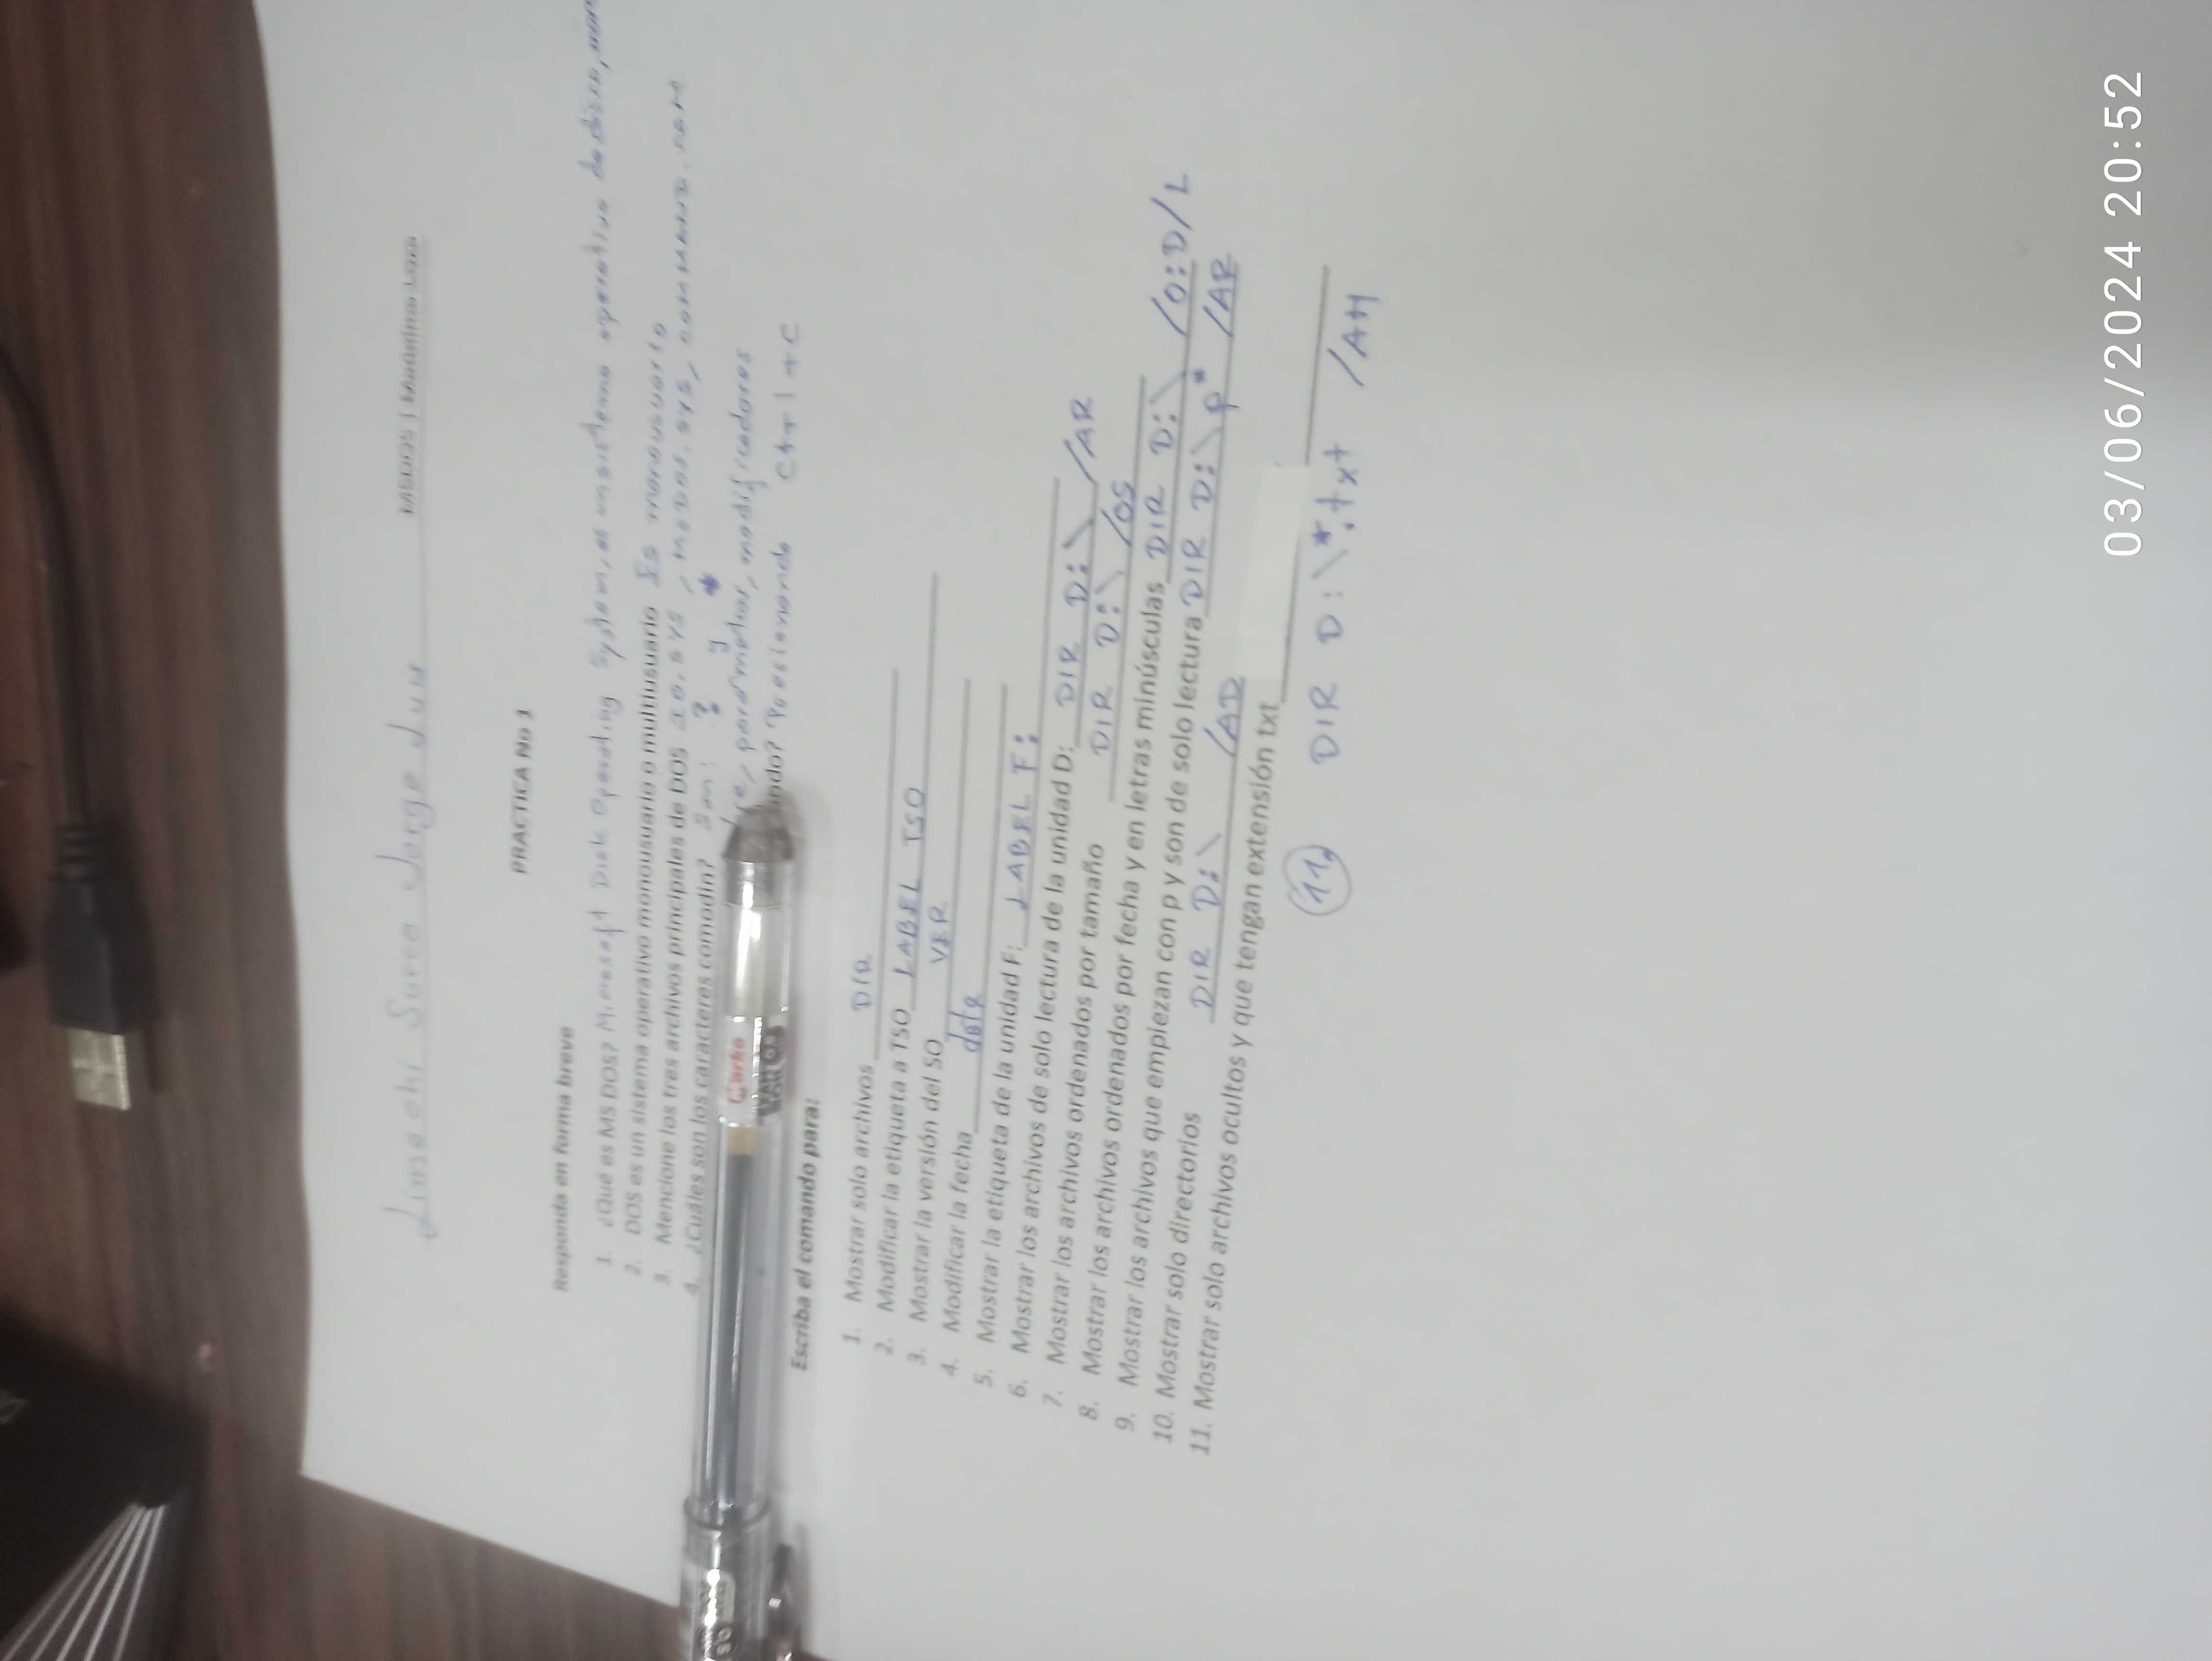 Limachi Surco Jorge Luis MSDOS | Madelina Loza
PRACTICA No 1
Responda en forma breve
1. ¿Qué es MS DOS? Microsoft Disk Operating System, es un sistema operativo de disco,
2. DOS es un sistema operativo monousuario o multiusuario Es monousuario
3. Mencione los tres archivos principales de DOS IO.SYS, MSDOS.SYS, COMMAND.COM
4. ¿Cuáles son los caracteres comodín? Son: ? y *
parámetros, modificadores
ando? Presionando Ctrl + C
Escriba el comando para:
1. Mostrar solo archivos DIR
2. Modificar la etiqueta a TSO LABEL TSO
3. Mostrar la versión del SO VER
4. Modificar la fecha date
5. Mostrar la etiqueta de la unidad F: LABEL F:
6. Mostrar los archivos de solo lectura de la unidad D: DIR D:\ /AR
7. Mostrar los archivos ordenados por tamaño DIR D:\ /OS
8. Mostrar los archivos ordenados por fecha y en letras minúsculas DIR D:\ /O:D/L
9. Mostrar los archivos que empiezan con p y son de solo lectura DIR D:\p* /AR
10. Mostrar solo directorios DIR D:\ /AD
11. Mostrar solo archivos ocultos y que tengan extensión txt
11. DIR D:\*.txt /AH
03/06/2024 20:52